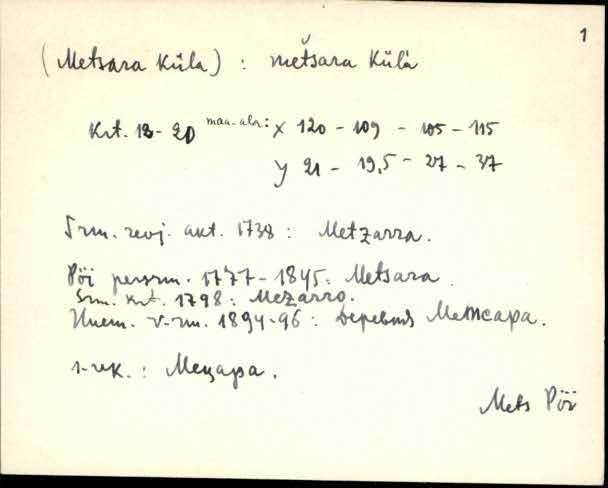 1
(Metsara Küla) : metsara Külà
Krt. 18-20 maa-ala: X 120 - 109 - 105 - 115
Y 21 - 19,5 - 27 - 37
Srm. revj. akt. 1738 : Metzarra.
Pöi persrm. 1777-1845: Metsara.
Srm. krt. 1798: Mezarro.
1894-96 : деревня Метсара.
Мецара.
Mets Pöi